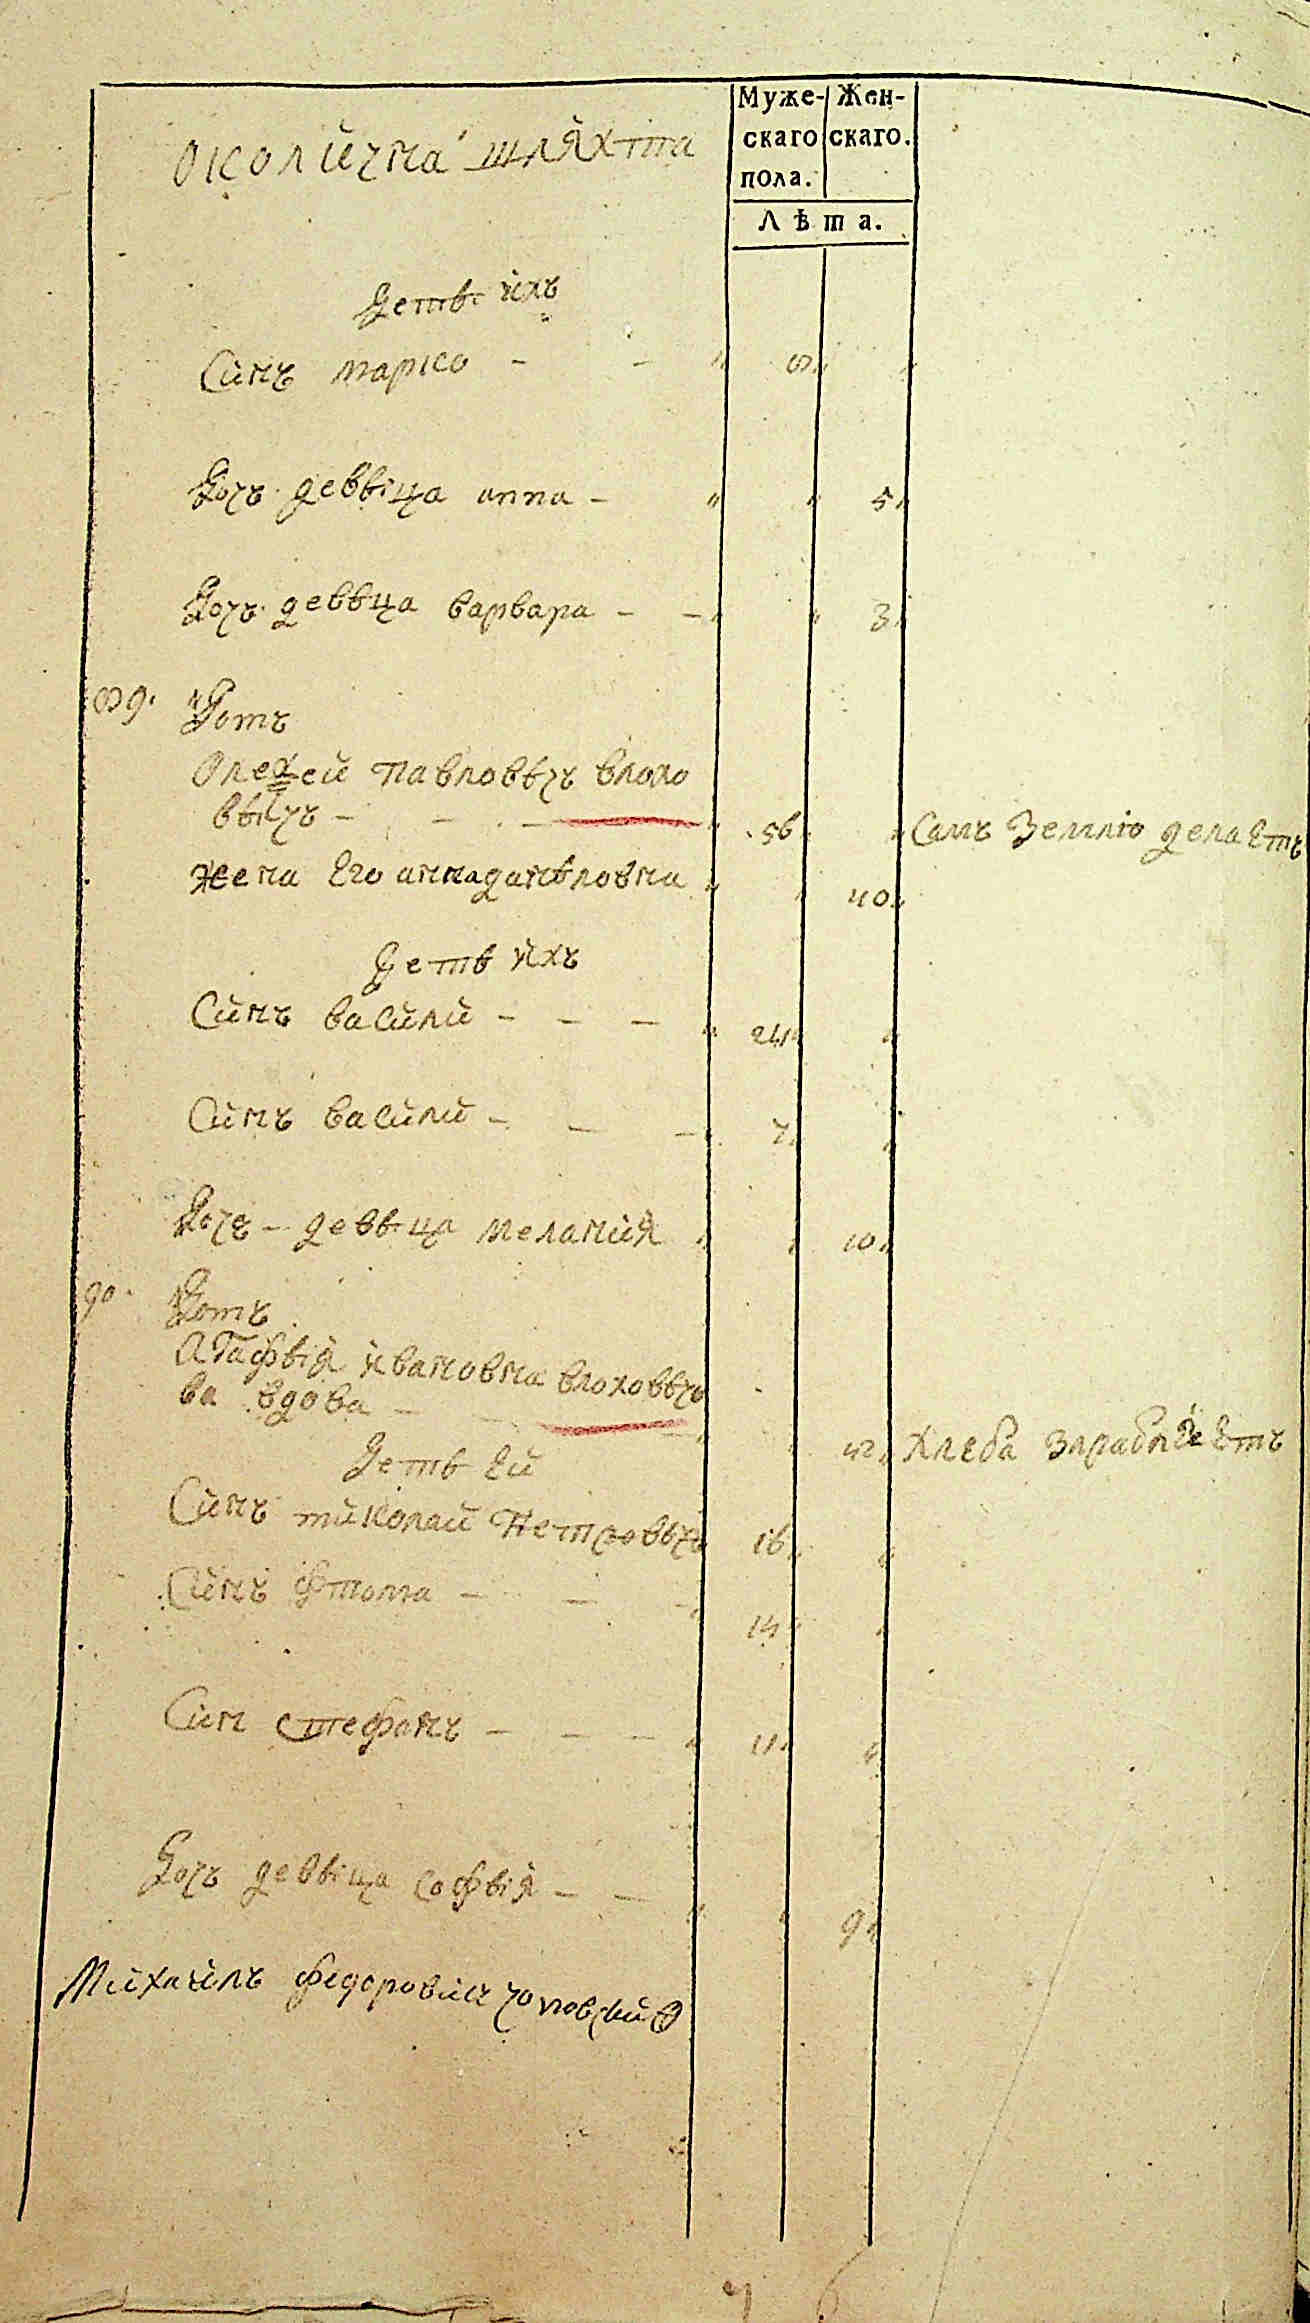 Муже- Жен-
околична шляхта скаго скаго.
пола.
Лѣта.
Дети ихъ
Синъ марко - - 8
Дочъ девица анна - 5
Дочъ девица варвара - - 3
89. Домъ
Олексей Павловичъ влохо
вичъ - - - 56 Самъ Землю делаетъ
жена Его анна даниловна 40
Дети ихъ
Синъ василий - - - 24
Синъ василий - - - 7
Дочъ - девица мелания 10
90. Домъ
Агафия ивановна влохович
ва вдова - 42 Хлеба
Дети Ей
Синъ николай Петровичъ 16
Синъ фтома - - - 14
Син стефанъ - - - 11
Дочъ девица софия - - 9
Михаилъ федорович